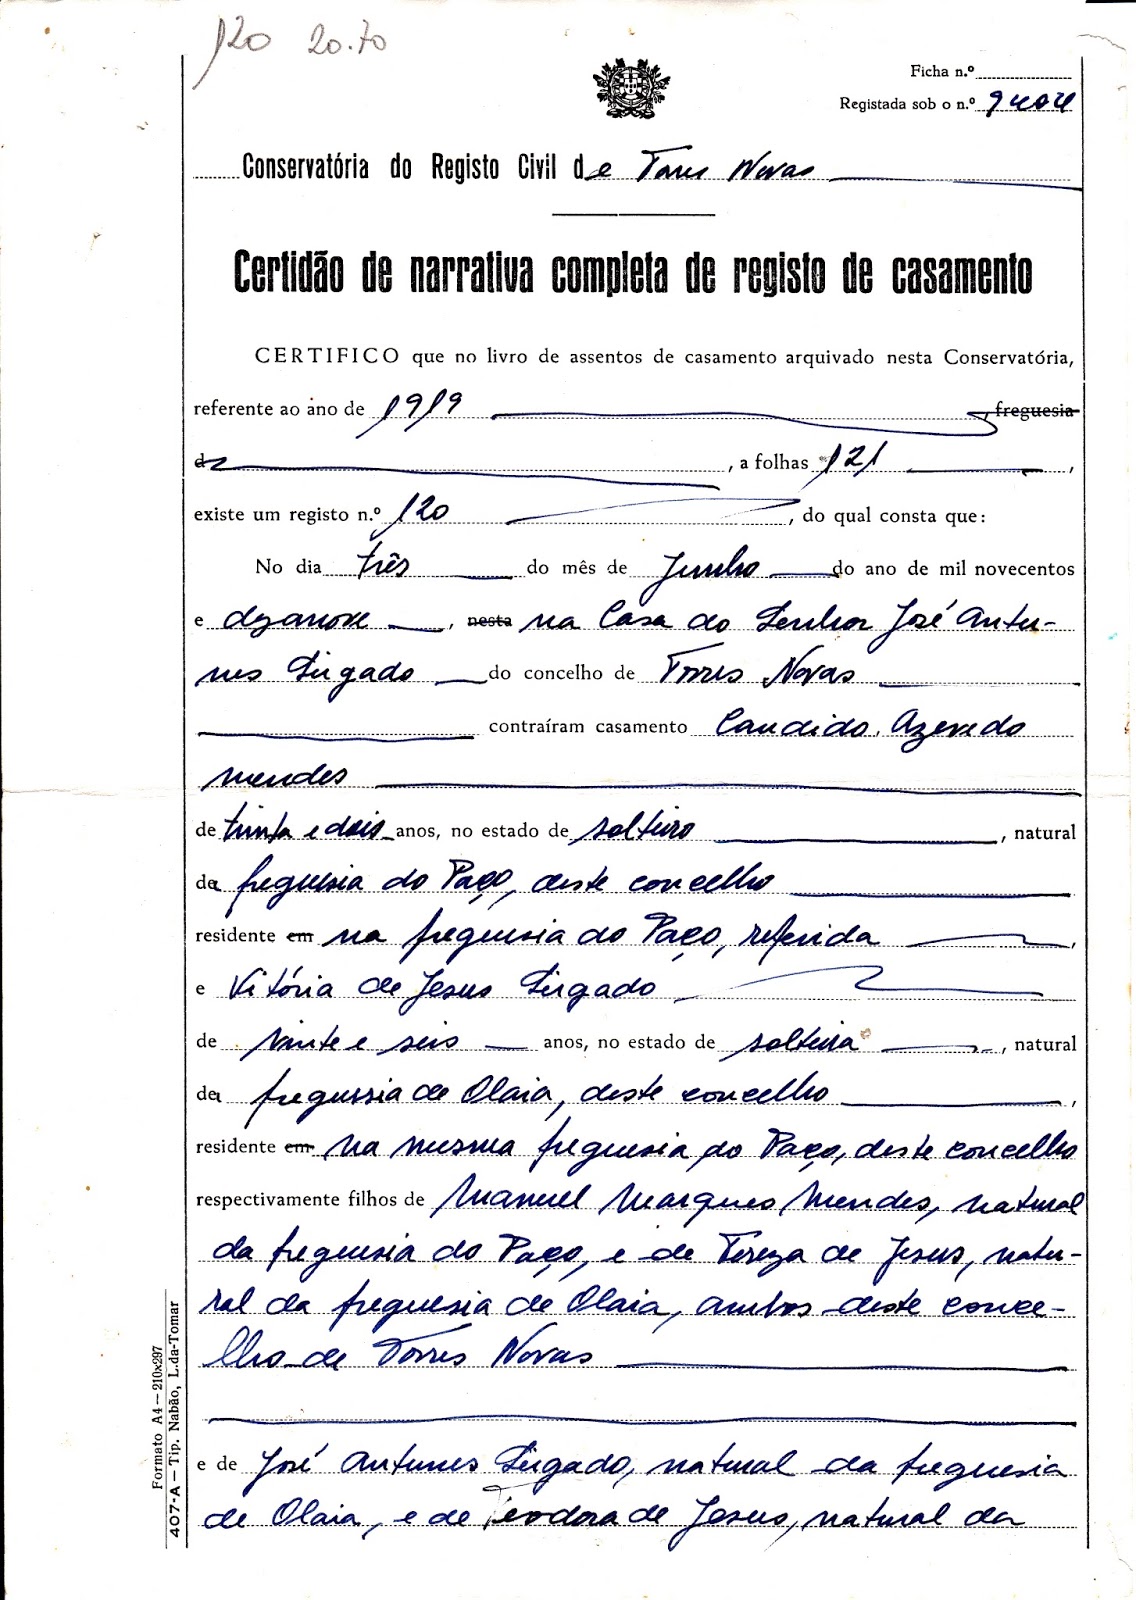 120 20.70
Ficha n.º
Registada sob o n.º 9404
Conservatória do Registo Civil de Torres Novas
Certidão de narrativa completa de registo de casamento
CERTIFICO que no livro de assentos de casamento arquivado nesta Conservatória,
referente ao ano de 1919, freguesia
d, a folhas 121,
existe um registo n.º 120, do qual consta que:
No dia três do mês de Junho do ano de mil novecentos
e dezanove, nesta na Casa do Senhor José Antu-
nes Sirgado do concelho de Torres Novas
contraíram casamento Candido Azevedo
Mendes
de trinta e dois anos, no estado de solteiro, natural
da freguesia do Paço, deste concelho
residente em na freguesia do Paço, referida,
e Vitória de Jesus Sirgado
de vinte e seis anos, no estado de solteira, natural
da freguesia de Olaia, deste concelho,
residente em na mesma freguesia do Paço, deste concelho
respectivamente filhos de Manuel Marques Mendes, natural
da freguesia do Paço, e de Tereza de Jesus, natu-
ral da freguesia de Olaia, ambos deste conce-
lho de Torres Novas
e de José Antunes Sirgado, natural da freguesia
de Olaia, e de Teodora de Jesus, natural da
Formato A4 — 210x297
407-A — Tip. Nabão, L.da-Tomar